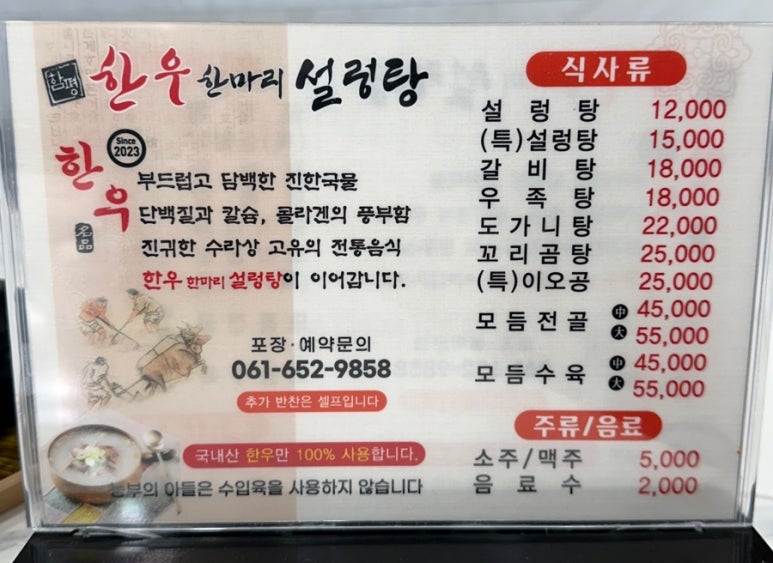 함평 한우 한마리 설렁탕
Since 2023
한우
名品
부드럽고 담백한 진한국물
단백질과 칼슘, 콜라겐의 풍부함
진귀한 수라상 고유의 전통음식
한우 한마리 설렁탕이 이어갑니다.
포장·예약문의
061-652-9858
추가 반찬은 셀프입니다
국내산 한우만 100% 사용합니다.
농부의 아들은 수입육을 사용하지 않습니다
식사류
설렁탕 12,000
(특)설렁탕 15,000
갈비탕 18,000
우족탕 18,000
도가니탕 22,000
꼬리곰탕 25,000
(특)이오공 25,000
모듬전골 中 45,000
大 55,000
모듬수육 中 45,000
大 55,000
주류/음료
소주/맥주 5,000
음료수 2,000